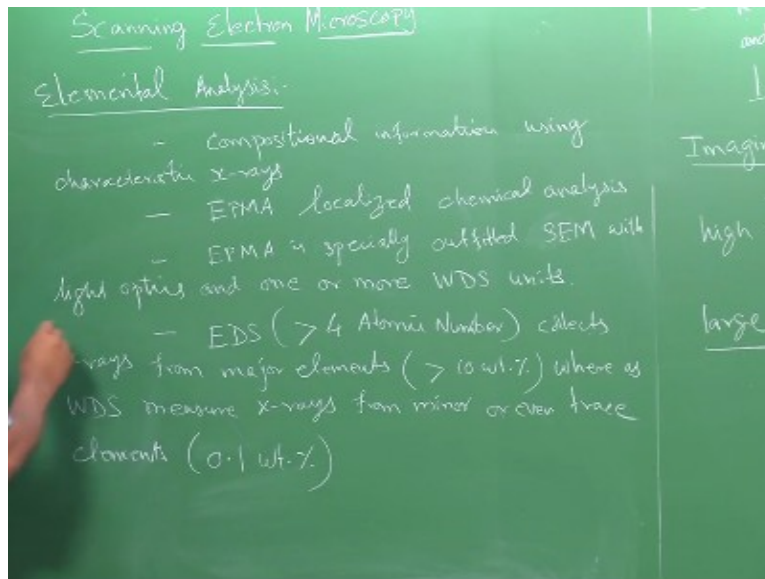 Scanning Electron Microscopy
Elemental Analysis:-
- Compositional information using
characteristic x-rays
- EPMA localized chemical analysis
- EPMA is specially outfitted SEM with
light optics and one or more WDS units.
- EDS (>4 Atomic Number) collects
x-rays from major elements (> 10 wt.%) where as
WDS measure x-rays from minor or even trace
elements (0.1 wt.%)
and
Imagin
high
large